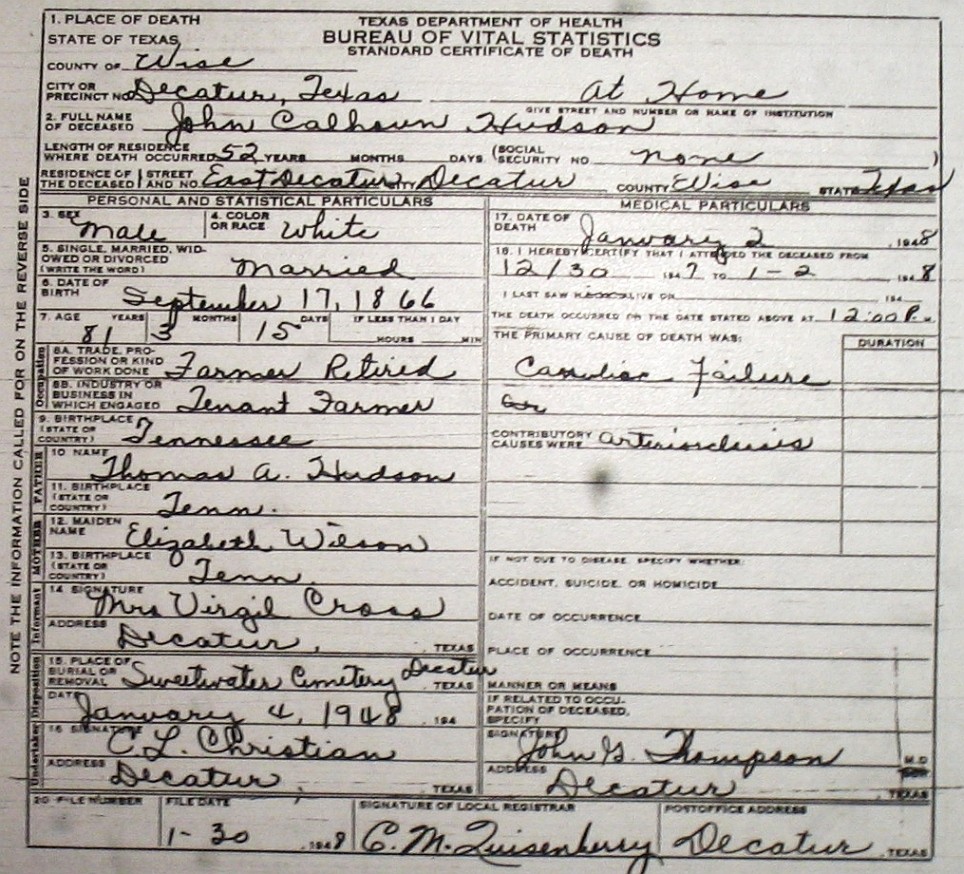 1. PLACE OF DEATH
STATE OF TEXAS
TEXAS DEPARTMENT OF HEALTH
BUREAU OF VITAL STATISTICS
STANDARD CERTIFICATE OF DEATH
COUNTY OF Wise
CITY OR
PRECINCT NO. Decatur, Texas At Home
GIVE STREET AND NUMBER OR NAME OF INSTITUTION
2. FULL NAME
OF DECEASED John Calhoun Hudson
LENGTH OF RESIDENCE
WHERE DEATH OCCURRED 52 YEARS MONTHS DAYS (SOCIAL SECURITY NO. none )
RESIDENCE OF THE DECEASED STREET AND NO. East Decatur CITY Decatur COUNTY Wise STATE Texas
PERSONAL AND STATISTICAL PARTICULARS
3. SEX Male 4. COLOR OR RACE White
5. SINGLE, MARRIED, WID-
OWED OR DIVORCED
(WRITE THE WORD) Married
6. DATE OF
BIRTH September 17, 1866
7. AGE YEARS MONTHS DAYS IF LESS THAN 1 DAY
81 3 15 HOURS MIN
Occupation
8A. TRADE, PRO-
FESSION OR KIND
OF WORK DONE Farmer Retired
8B. INDUSTRY OR
BUSINESS IN
WHICH ENGAGED Tenant Farmer
9. BIRTHPLACE
(STATE OR
COUNTRY) Tennessee
FATHER
10 NAME Thomas A. Hudson
11. BIRTHPLACE
(STATE OR
COUNTRY) Tenn.
MOTHER
12. MAIDEN
NAME Elizabeth Wilson
13. BIRTHPLACE
(STATE OR
COUNTRY) Tenn.
Informant
14 SIGNATURE Mrs Virgil Cross
ADDRESS Decatur, TEXAS
Disposition
15. PLACE OF
BURIAL OR
REMOVAL Sweetwater Cemetery Decatur, TEXAS
DATE January 4, 1948, 194
Undertaker
16 SIGNATURE C. L. Christian
ADDRESS Decatur, TEXAS
MEDICAL PARTICULARS
17. DATE OF
DEATH January 2, 1948
18. I HEREBY CERTIFY THAT I ATTENDED THE DECEASED FROM
12/30 1947 TO 1-2 1948
I LAST SAW ALIVE ON 194
THE DEATH OCCURRED ON THE DATE STATED ABOVE AT 12:00 P. M.
THE PRIMARY CAUSE OF DEATH WAS: DURATION
Failure
CONTRIBUTORY
CAUSES WERE
IF NOT DUE TO DISEASE, SPECIFY WHETHER:
ACCIDENT, SUICIDE, OR HOMICIDE
DATE OF OCCURRENCE
PLACE OF OCCURRENCE
MANNER OR MEANS
IF RELATED TO OCCU-
PATION OF DECEASED,
SPECIFY
SIGNATURE John G. Thompson M.D.
ADDRESS Decatur TEXAS
20 FILE NUMBER FILE DATE SIGNATURE OF LOCAL REGISTRAR POSTOFFICE ADDRESS
1-30, 1948 C. M. Quisenberry Decatur, TEXAS
NOTE THE INFORMATION CALLED FOR ON THE REVERSE SIDE